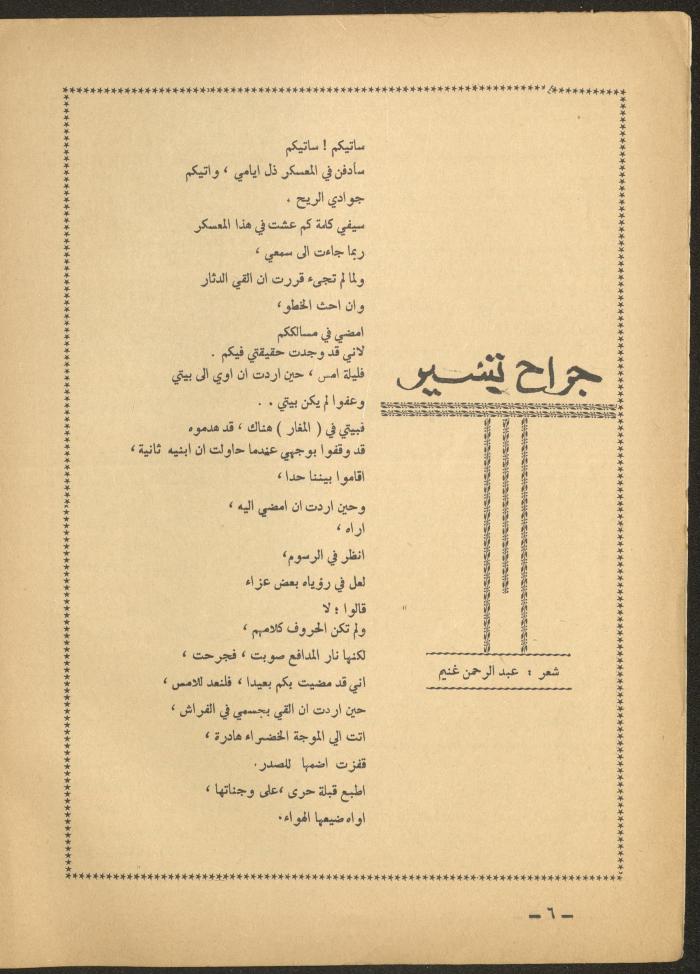 جراح تسير
شعر : عبد الرحمن غنيم
ساتيكم ! ساتيكم
سأدفن في المعسكر ذل ايامي ، واتيكم
جوادي الريح .
سيفي كلمة كم عشت في هذا المعسكر
ربما جاءت الى سمعي ،
ولما لم تجىء قررت ان القي الدثار
وان احث الخطو،
امضي في مسالككم
لاني قد وجدت حقيقتي فيكم .
فليلة امس ، حين اردت ان اوي الى بيتي
وعفوا لم يكن بيتي . .
فبيتي في ( المغار ) هناك ، قد هدموه
قد وقفوا بوجهي عندما حاولت ان ابنيه ثانية ،
اقاموا بيننا حدا ،
وحين اردت ان امضي اليه ،
اراه ،
انظر في الرسوم،
لعل في رؤياه بعض عزاء
قالوا ؛ لا
ولم تكن الحروف كلامهم ،
لكنها نار المدافع صوبت ، فجرحت ،
اني قد مضيت بكم بعيدا ، فلنعد للامس ،
حين اردت ان القي بجسمي في الفراش ،
اتت الي الموجة الخضراء هادرة ،
قفزت اضمها للصدر.
اطبع قبلة حرى ،على وجناتها ،
اواه ضيعها الهواء.
— ٦ —